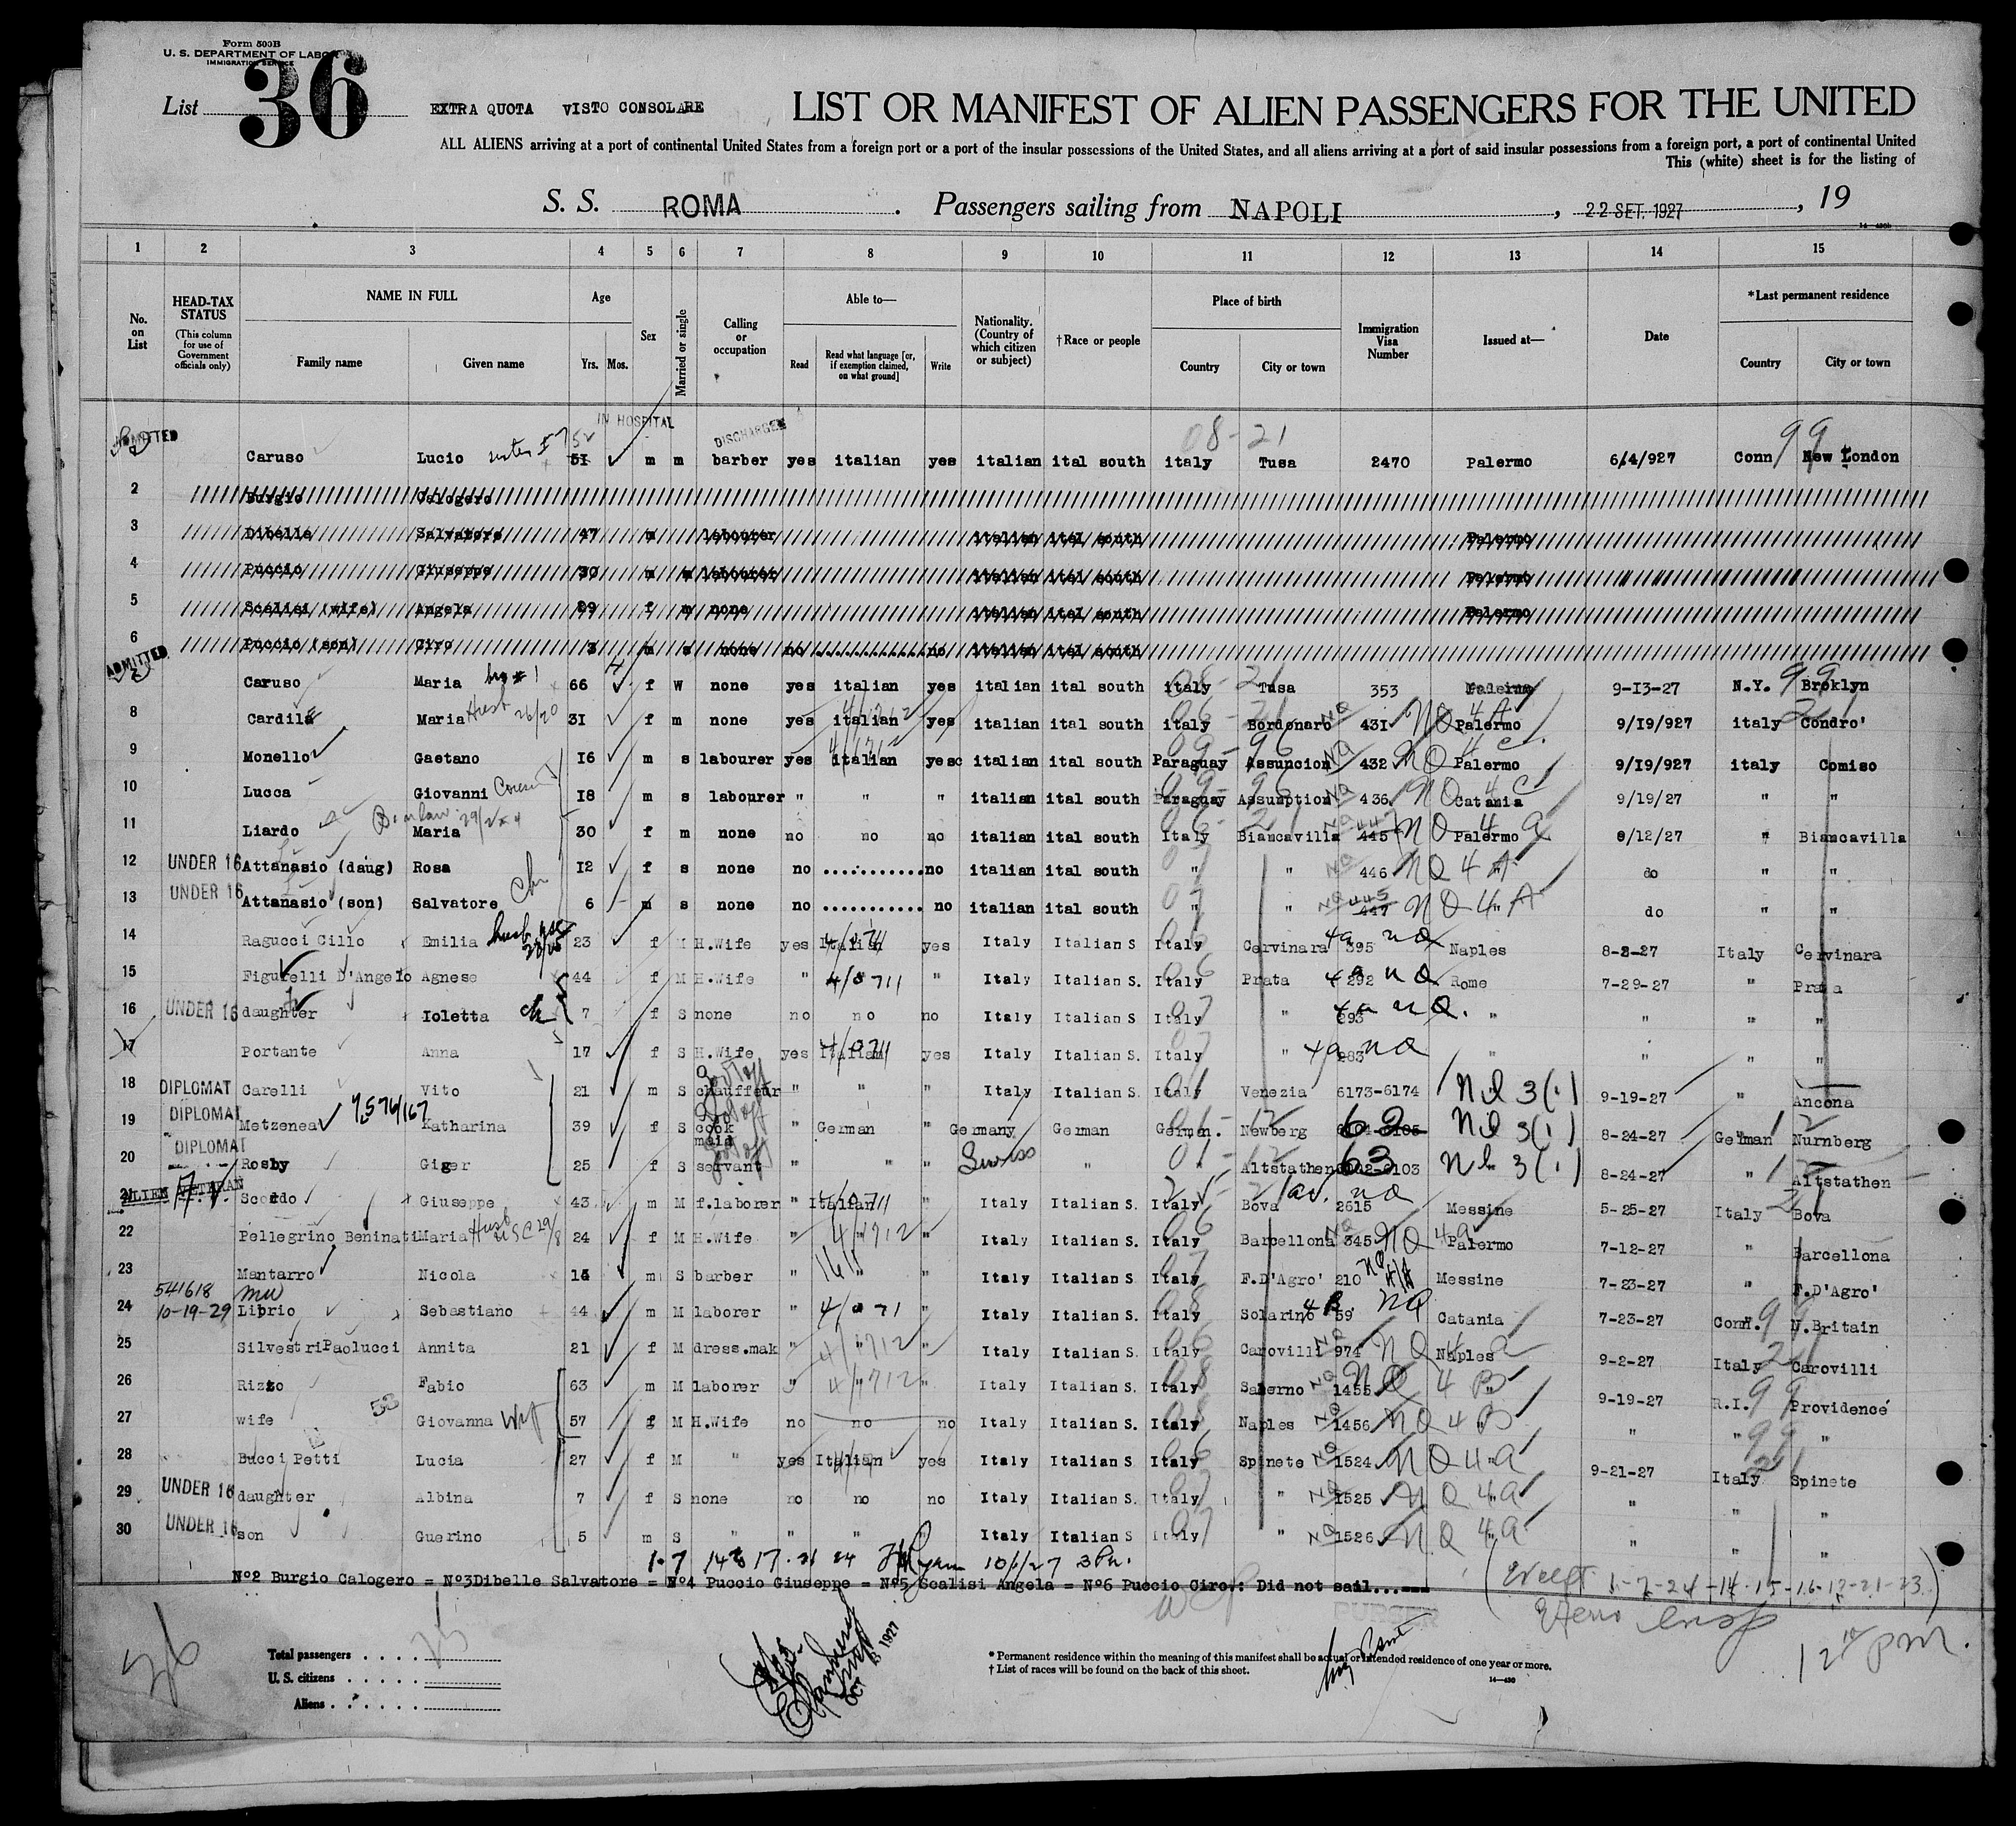 Form 500B
U. S. DEPARTMENT OF LABOR
IMMIGRATION SERVICE
List 36 EXTRA QUOTA VISTO CONSOLARE LIST OR MANIFEST OF ALIEN PASSENGERS FOR THE UNITED
ALL ALIENS arriving at a port of continental United States from a foreign port or a port of the insular possessions of the United States, and all aliens arriving at a port of said insular possessions from a foreign port, a port of continental United
This (white) sheet is for the listing of
S. S. ROMA. Passengers sailing from NAPOLI, 22 SET. 1927, 19
1 2 3 4 5 6 7 8 9 10 11 12 13 14 15
No. on List
HEAD-TAX STATUS (This column for use of Government officials only)
NAME IN FULL Family name Given name
Age Yrs. Mos.
Sex
Married or single
Calling or occupation
Able to— Read Read what language [or, if exemption claimed, on what ground] Write
Nationality. (Country of which citizen or subject)
†Race or people
Place of birth Country City or town
Immigration Visa Number
Issued at—
Date
*Last permanent residence Country City or town
IN HOSPITAL DISCHARGED 08-21
ADMITTED Caruso Lucio 52 51 m m barber yes italian yes italian ital south italy Tusa 2470 Palermo 6/4/927 Conn 99 New London
2 Burgio Calogero
3 Dibelle Salvatore 47 m labourer italian ital south Palermo
4 Puccio Giuseppe 30 m m labourer italian ital south Palermo
5 Scalisi (wife) Angela 29 f m none italian ital south Palermo
6 Puccio (son) Ciro 3 m s none no no italian ital south
ADMITTED Caruso Maria 66 f W none yes italian yes italian ital south italy Tusa 353 Palermo 9-13-27 N.Y. 99 Broklyn
8 Cardile Maria Husb 26/20 31 f m none yes italian yes italian ital south italy Bordonaro 431 NQ 4A Palermo 9/19/927 italy Condro'
9 Monello Gaetano 16 m s labourer yes italian yesc italian ital south Paraguay Assuncion 432 NQ 4c Palermo 9/19/927 italy Comiso
10 Lucca Giovanni 18 m s labourer " " " italian ital south Paraguay Assumption 436 NQ 4C Catania 9/19/27 " "
11 Liardo Maria 30 f m none no no no italian ital south Italy Biancavilla 445 NQ 4a Palermo 9/12/27 " Biancavilla
12 UNDER 16 Attanasio (daug) Rosa 12 f s none no ........... no italian ital south " " 446 NQ 4A do " "
13 UNDER 16 Attanasio (son) Salvatore 6 m s none no ........... no italian ital south " " 445 447 NQ 4A do " "
14 Ragucci Cillo Emilia 23 f M H.Wife yes Italian yes Italy Italian S Italy Cervinara 4a 395 NQ Naples 8-2-27 Italy Cervinara
15 Figurelli D'Angelo Agnese 44 f M H.Wife " 4/0711 " Italy Italian S. Italy Prata 4a 292 NQ Rome 7-29-27 " Prata
16 UNDER 16 daughter Ioletta ch 7 f S none no no no Italy Italian S Italy " 4a 293 NQ. " " " "
17 Portante Anna 17 f S H.Wife yes Italian yes Italy Italian S. Italy " 4a 283 NQ " " " "
18 DIPLOMAT Carelli Vito 21 m S chauffeur " " " Italy Italian S. Italy Venezia 6173-6174 3(1) 9-19-27 " Ancona
19 DIPLOMAT Metzenea Katharina 39 f S cook " German " Germany German German. Newberg 62 3(1) 8-24-27 German Nurnberg
20 DIPLOMAT Rosby Giger 25 f S maid servant " " " Swiss " " Altstathen 63 3(1) 8-24-27 " Altstathen
21 ALIEN VETERAN Scordo Giuseppe 43 m M f.laborer " Italian " Italy Italian S. Italy Bova 2615 NQ Messine 5-25-27 Italy Bova
22 Pellegrino Beninati Maria Husb USC 29/8 24 f M H.Wife " 4/1712 " Italy Italian S. Italy Barcellona 345 NQ 4a Palermo 7-12-27 " Barcellona
23 Mantarro Nicola m S barber " " Italy Italian S. Italy F.D'Agro' 210 NQ Messine 7-23-27 " F.D'Agro'
541618
24 10-19-29 Librio Sebastiano 44 m M laborer " " Italy Italian S. Italy Solarino 4B 59 NQ Catania 7-23-27 Conn. 99 N.Britain
25 Silvestri Paolucci Annita 21 f M dress.mak " 4/1712 " Italy Italian S. Italy Carovilli 974 NQ 4a Naples 9-2-27 Italy Carovilli
26 Rizzo Fabio 63 m M laborer " 4/1712 " Italy Italian S. Italy Salerno 1455 NQ 4B " 9-19-27 R.I. 99 Providence
27 wife Giovanna Wif 57 f M H.Wife no no no Italy Italian S. Italy Naples 1456 NQ 4B " " " 99 "
28 Bucci Petti Lucia 27 f M " yes Italian yes Italy Italian S. Italy Spinete 1524 NQ 4a 9-21-27 Italy Spinete
29 UNDER 16 daughter Albina 7 f S none no no no Italy Italian S. Italy " 1525 NQ 4a " " "
30 UNDER 16 son Guerino 5 m S " " " " Italy Italian S Italy " 1526 NQ 4a " " "
Nº2 Burgio Calogero = Nº3 Dibelle Salvatore = Nº4 Puccio Giuseppe = Nº5 Scalisi Angela = Nº6 Puccio Ciro: Did not sail...
Except 1-7-24-14-15-16-17-21-23
12 PM.
Total passengers . . . . 25
U. S. citizens . . . . .
Aliens . . . . . .
* Permanent residence within the meaning of this manifest shall be actual or intended residence of one year or more.
† List of races will be found on the back of this sheet.
14—430